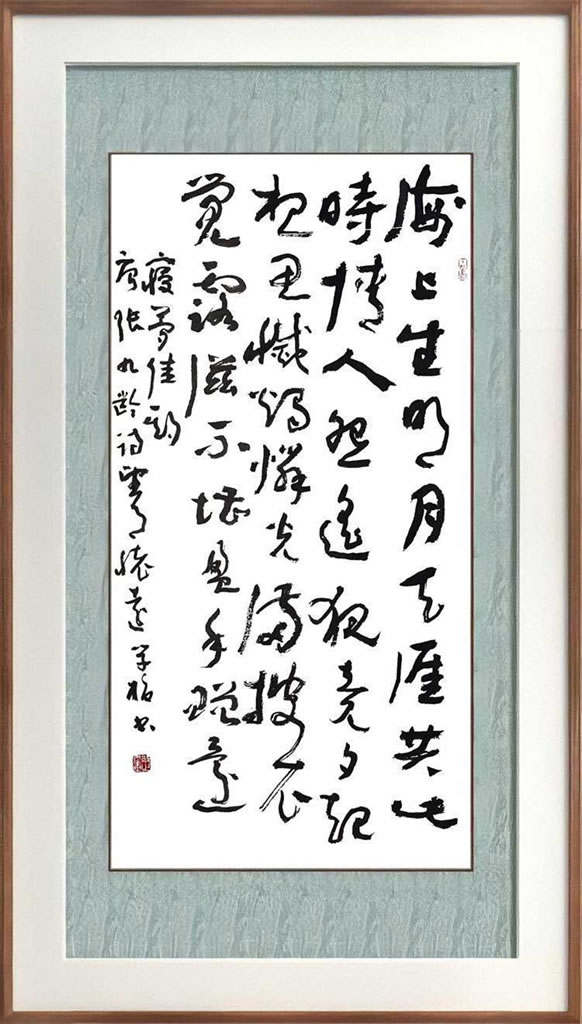 海上生明月天涯共此
時情人怨遙夜竟夕起
相思滅燭憐光滿披衣
覺露滋不堪盈手贈還
寢夢佳期
唐張九齡詩望月懷遠 书